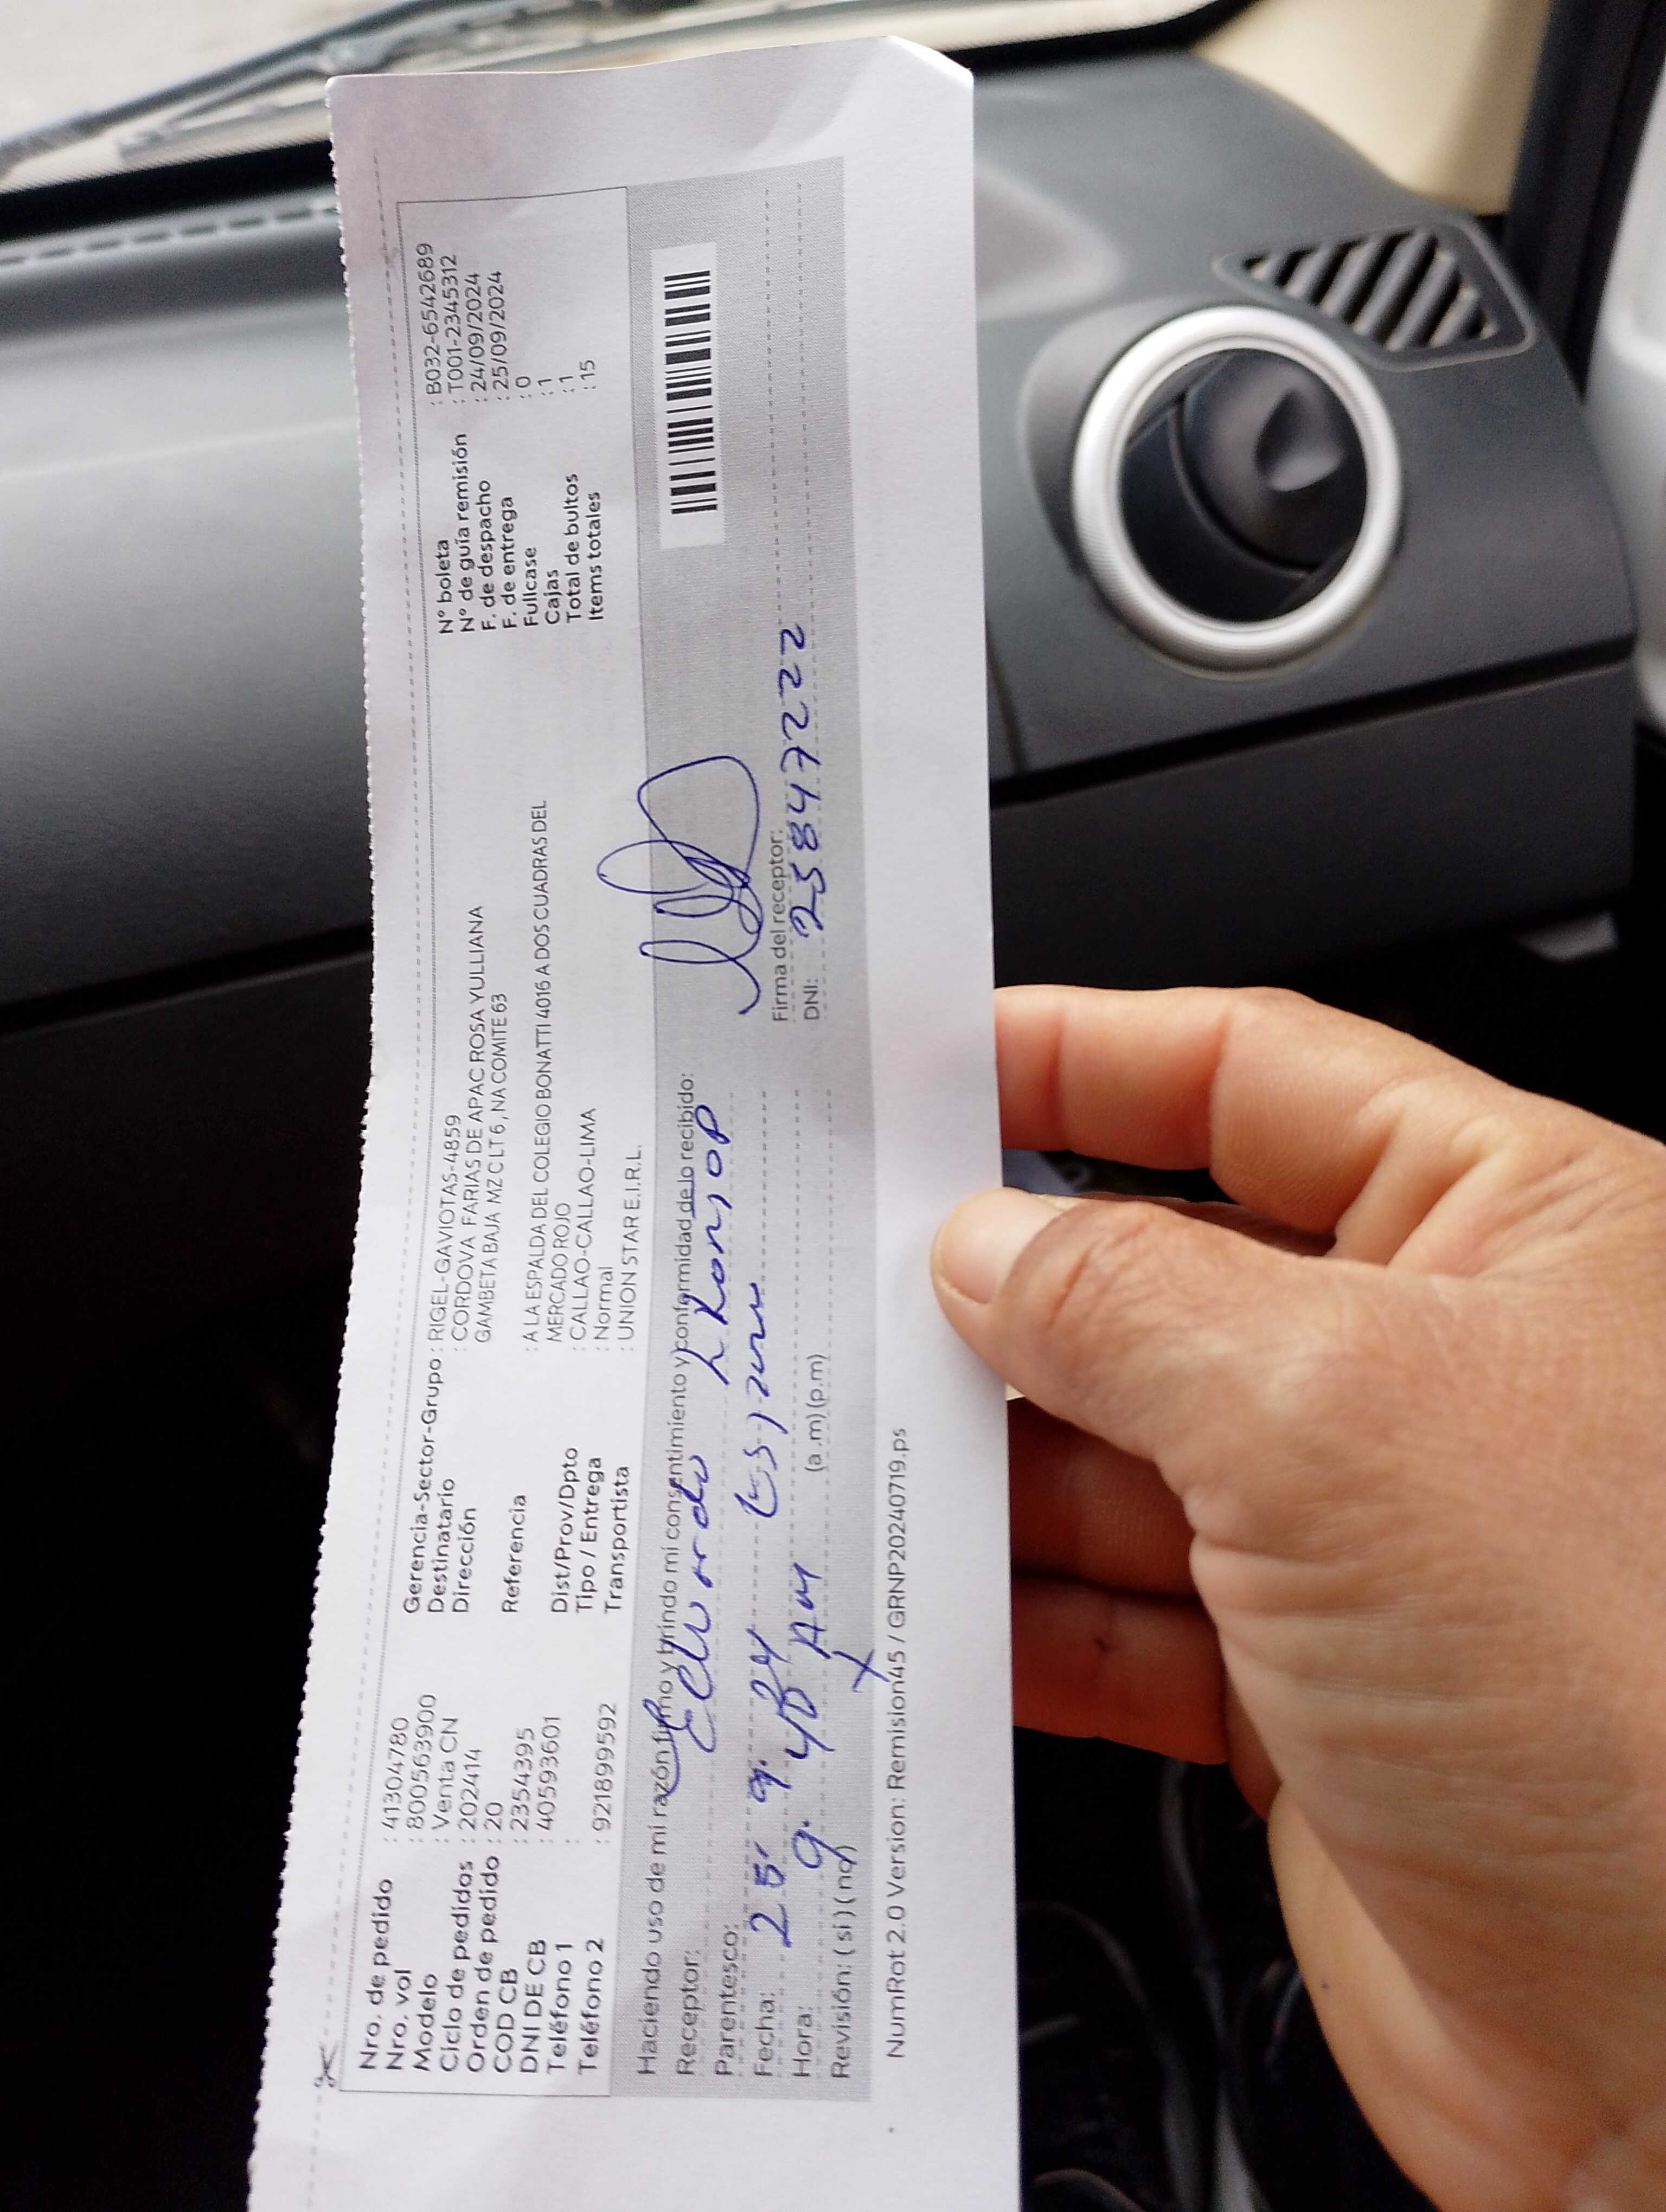 Nro. de pedido : 41304780
Nro. vol : 800563900
Modelo : Venta CN
Ciclo de pedidos : 202414
Orden de pedido : 20
COD CB : 2354395
DNI DE CB : 40593601
Teléfono 1 :
Teléfono 2 : 921899592
Gerencia-Sector-Grupo : RIGEL-GAVIOTAS-4859
Destinatario : CORDOVA FARIAS DE APAC ROSA YULLIANA
Dirección GAMBETA BAJA MZ C LT 6 , NA COMITE 63
Referencia : A LA ESPALDA DEL COLEGIO BONATTI 4016 A DOS CUADRAS DEL
MERCADO ROJO
Dist/Prov/Dpto : CALLAO-CALLAO-LIMA
Tipo / Entrega : Normal
Transportista : UNION STAR E.I.R.L.
N° boleta : B032-6542689
N° de guía remisión : T001-2345312
F. de despacho : 24/09/2024
F. de entrega : 25/09/2024
Fullcase : 0
Cajas : 1
Total de bultos : 1
Items totales : 15
Haciendo uso de mi razón firmo y brindo mi consentimiento y conformidad de lo recibido:
Receptor: Eduardo
Parentesco:
Fecha: 25. 9. 24
Hora: 9. 40 AM (a.m) (p.m)
Revisión: ( si ) ( no )
Firma del receptor:
DNI: 25847222
NumRot 2.0 Version: Remision45 / GRNP20240719.ps